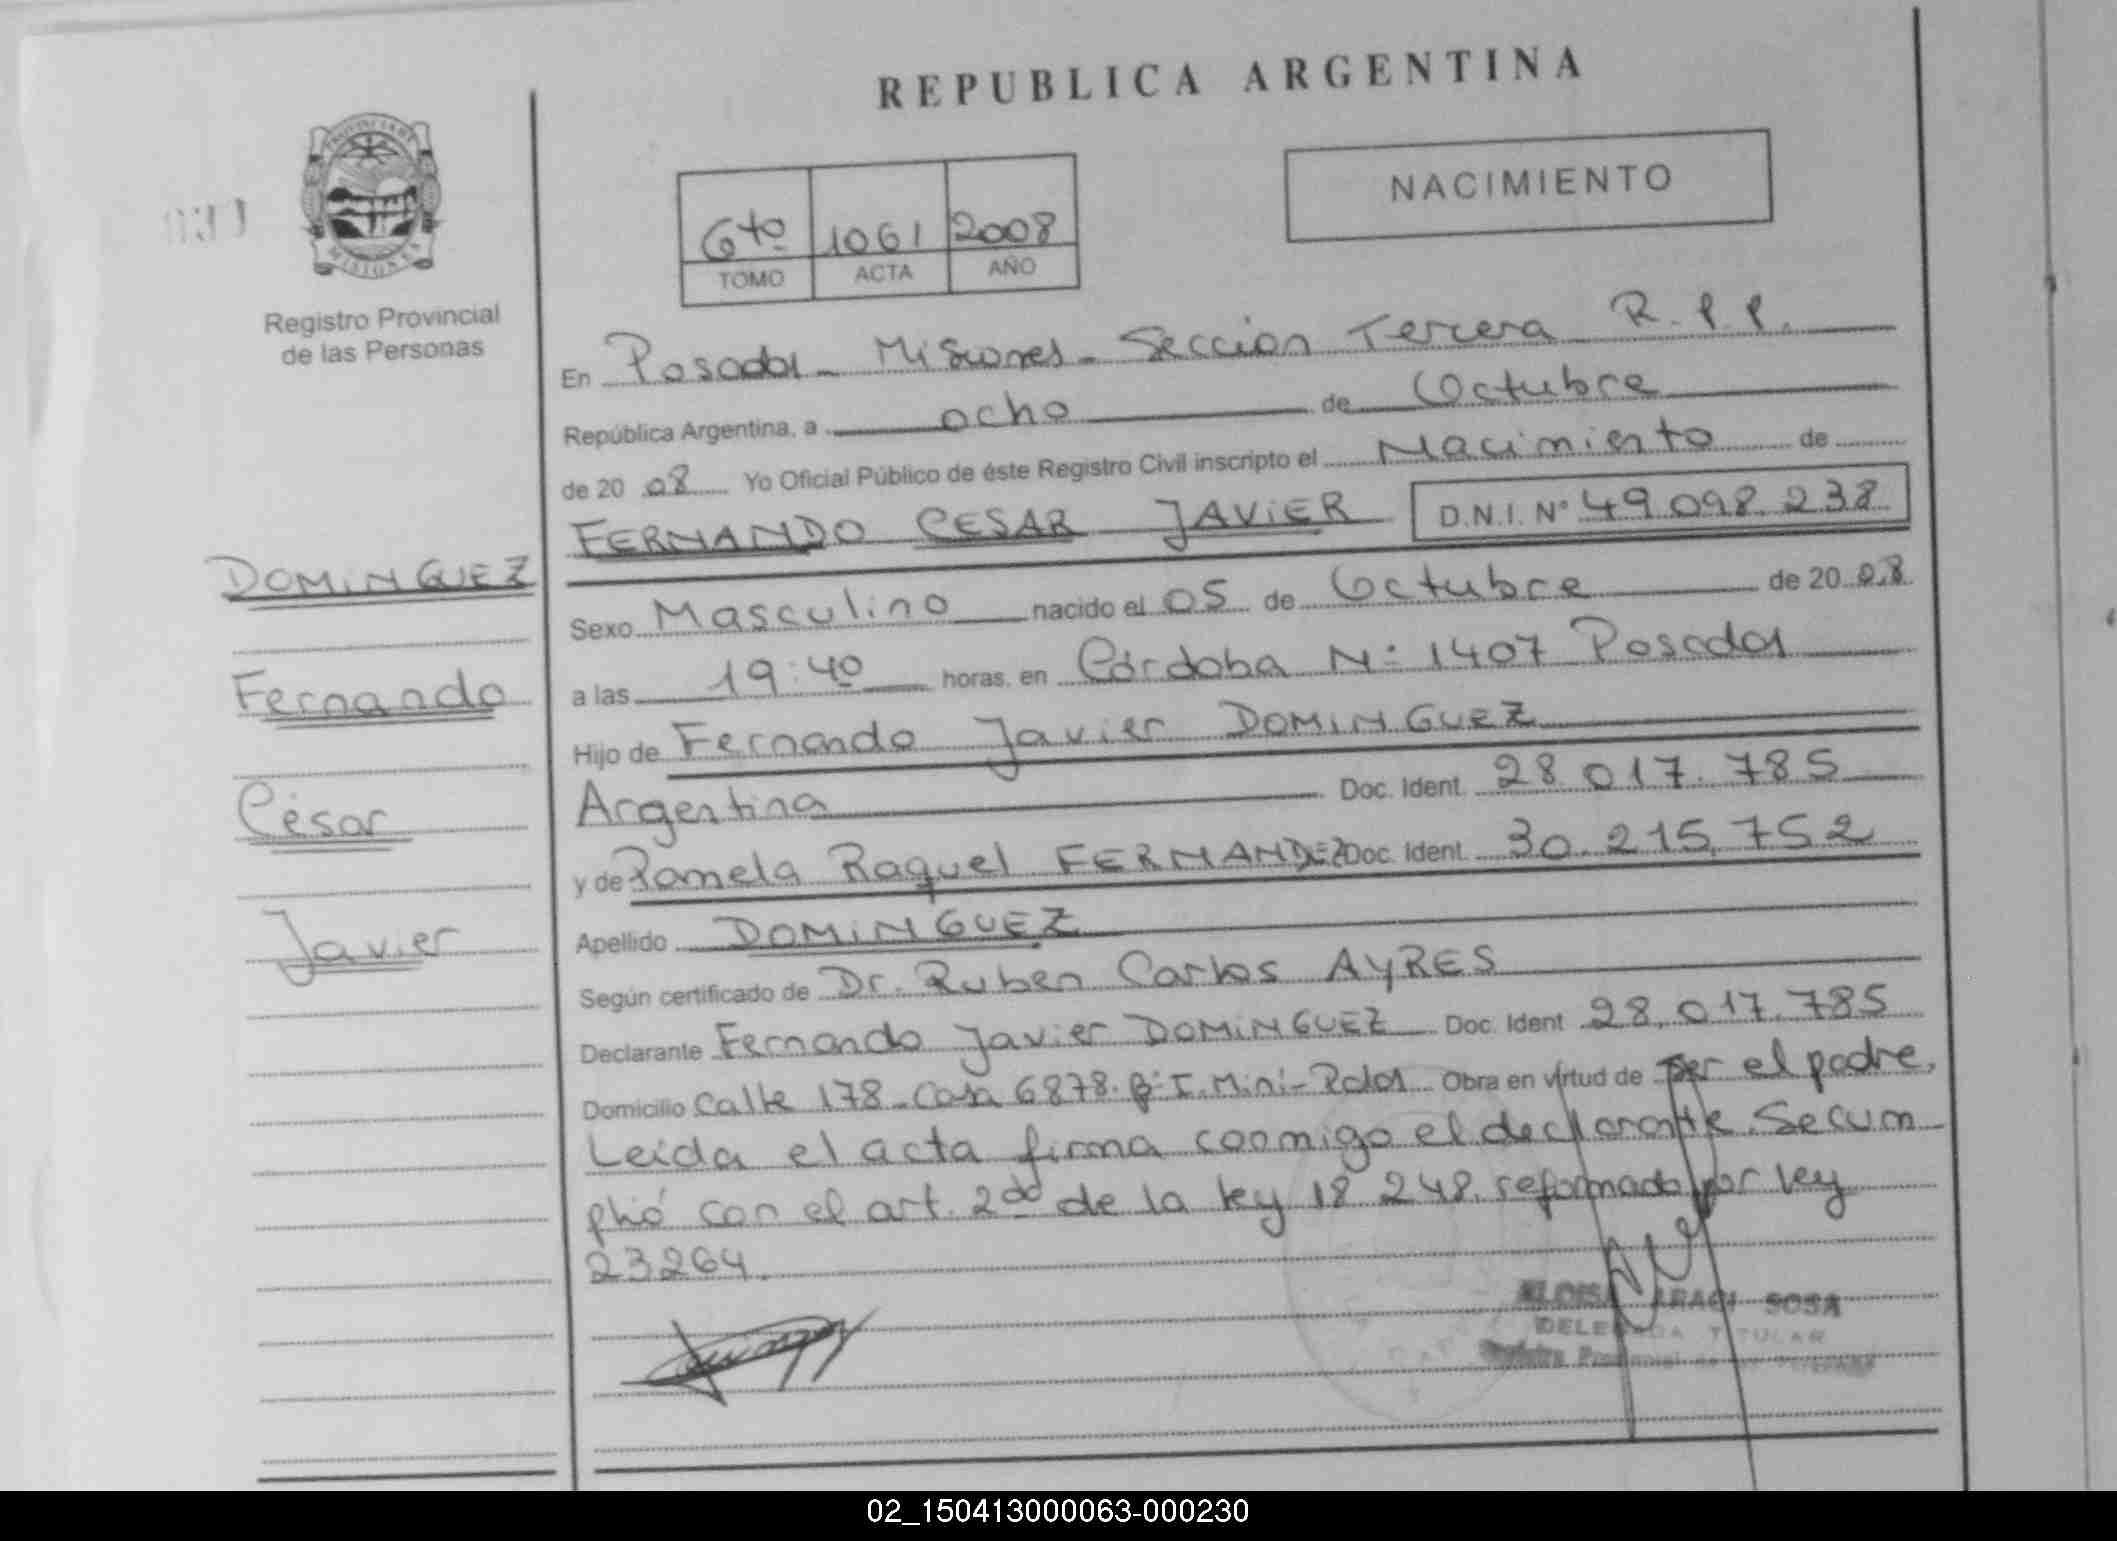 REPUBLICA ARGENTINA
PROVINCIA DE
MISIONES
Registro Provincial
de las Personas
6to 1061 2008
TOMO ACTA AÑO
NACIMIENTO
En Posadas - Misiones - Sección Tercera R.P.P.
República Argentina, a ocho de Octubre
de 2008 Yo Oficial Público de éste Registro Civil inscripto el Nacimiento de
FERNANDO CESAR JAVIER D.N.I. N° 49.098.238
Sexo Masculino nacido el 05 de Octubre de 2008
a las 19:40 horas, en Córdoba N: 1407 Posadas
Hijo de Fernando Javier DOMINGUEZ
Argentina Doc. Ident. 28.017.785
y de Pamela Raquel FERNANDEZ Doc. Ident. 30.215.752
Apellido DOMINGUEZ
Según certificado de Dr. Ruben Carlos AYRES
Declarante Fernando Javier DOMINGUEZ Doc. Ident 28.017.785
Domicilio Calle 178 - Casa 6878. B: I. Mini - Pdas Obra en virtud de ser el padre.
Leida el acta firma coomigo el declarante. Secum
plió con el art. 2do de la ley 18 248. reformado por ley
23264.
DOMINGUEZ
Fernando
César
Javier
ELOISA ARACI SOSA
DELEGADA TITULAR
Registro Provincial de las Personas
02_150413000063-000230